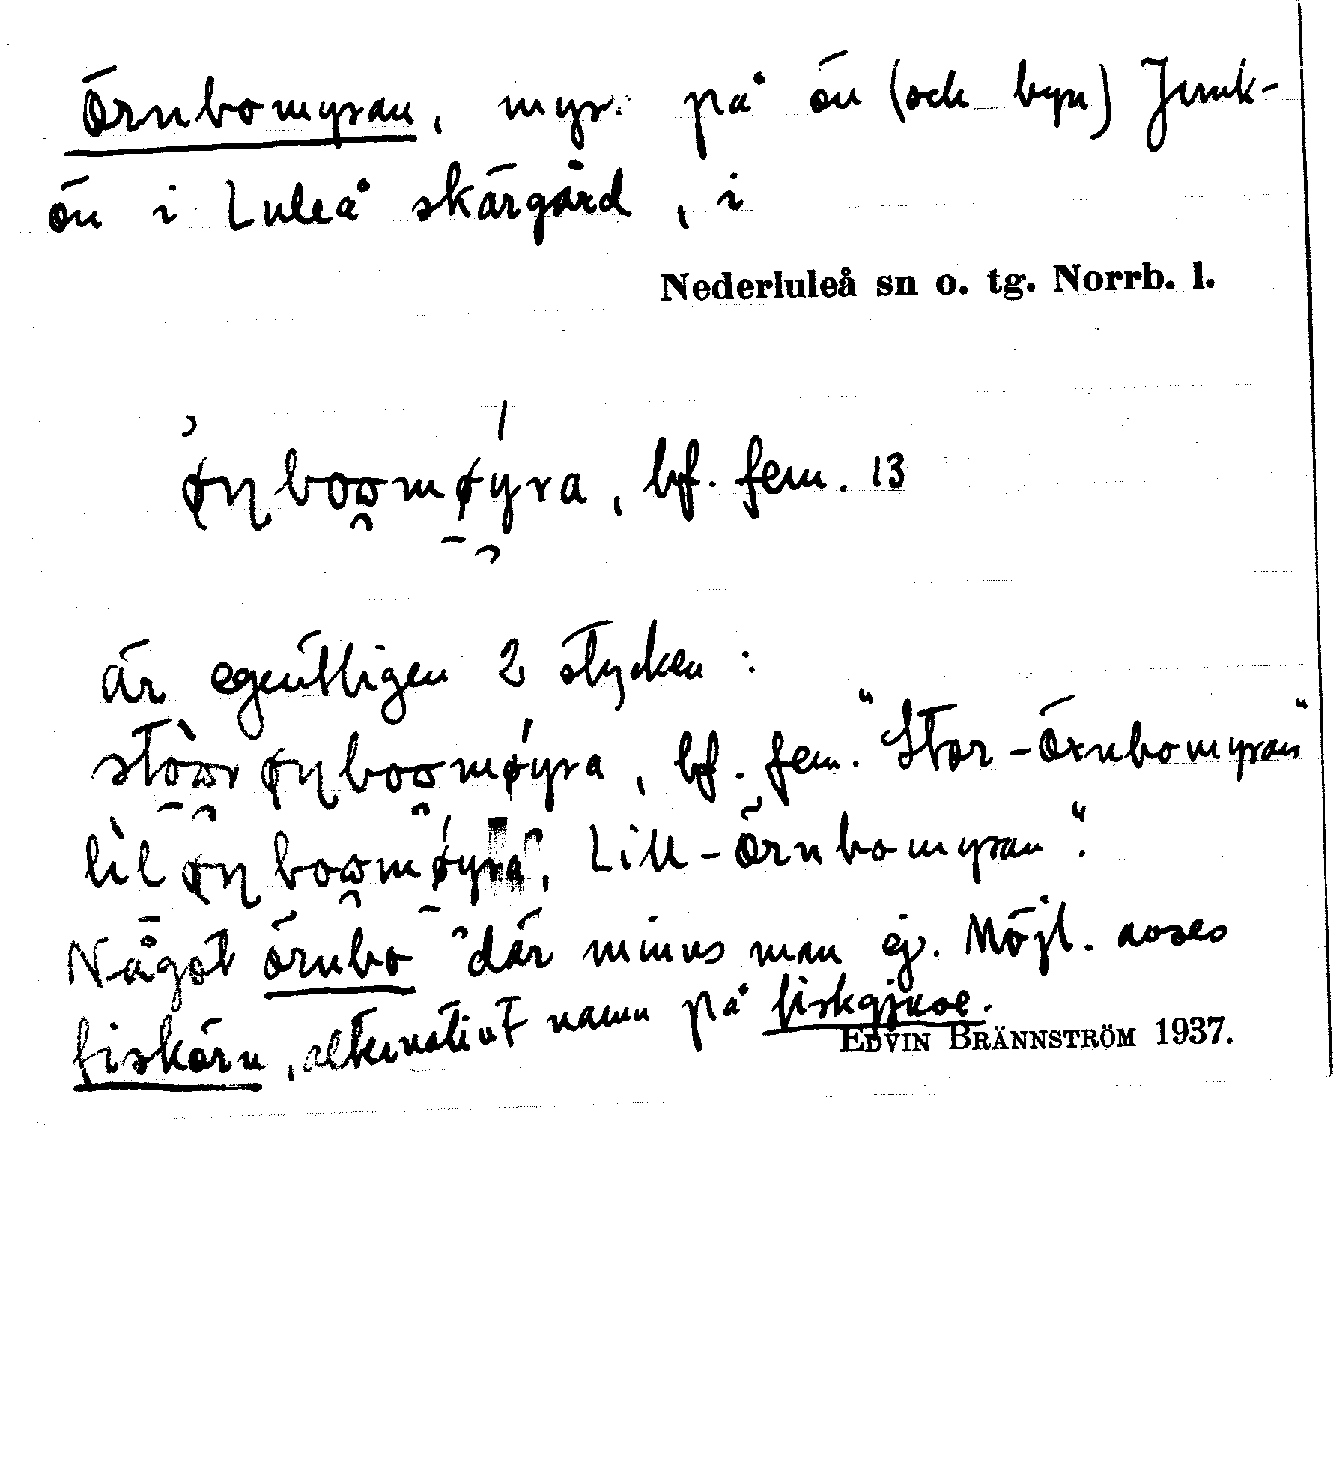 Örnbomyran, myr på ön (och byn) Junk-
ön i Luleå skärgård, i
Nederluleå sn o. tg. Norrb. l.
bf. fem. 13
är egentligen 2 stycken:
bf. fem. "Stor-Örnbomyran"
"Lill-Örnbomyran".
Något örnbo där minns man ej. Möjl. avses
fiskörn, alternativt namn på fiskgjuse.
EDVIN BRÄNNSTRÖM 1937.